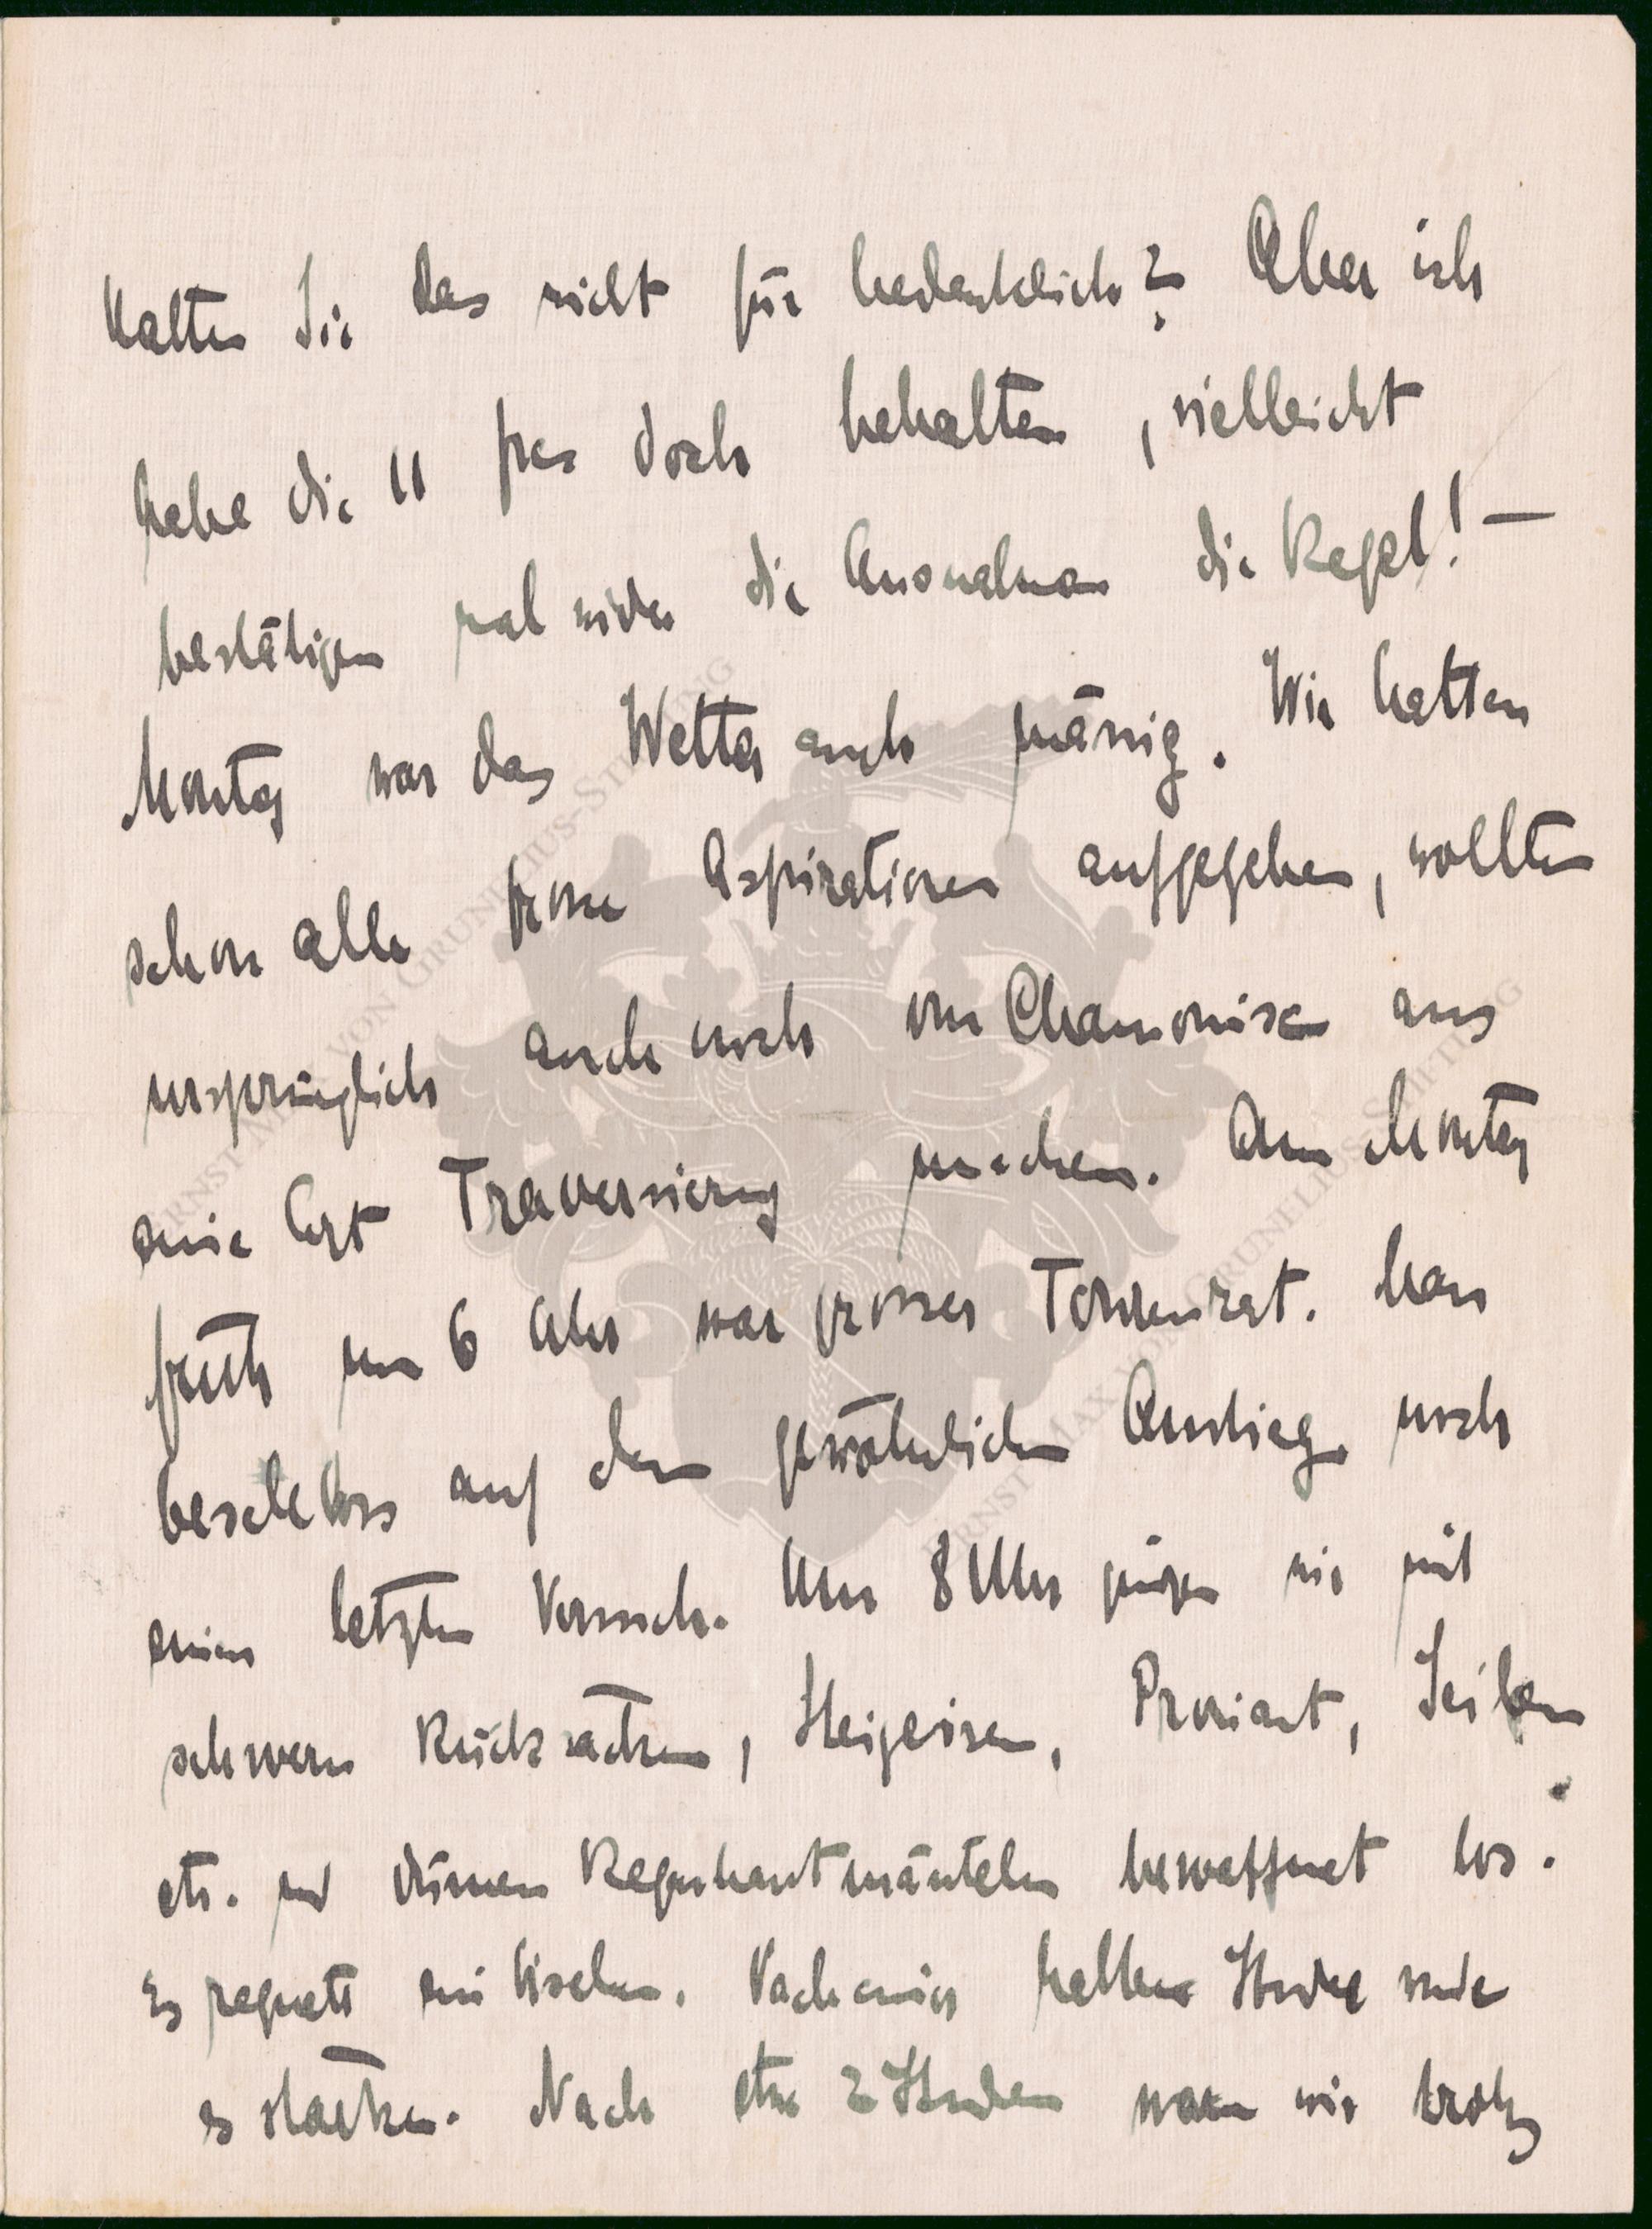 Halten Sie das nicht für bedenklich? Aber ich
habe die 11 frcs doch behalten, vielleicht
bestätigen mal wider die Ausnahmen die Regel! —
Montag war das Wetter auch mässig. Wir hatten
schon alle grosse Aspirationen aufgegeben, wollten
ursprünglich auch noch von Chamonix aus
eine Art Traversierung machen. Am Montag
früh um 6 Uhr war grosser Tourenrat. Man
beschloss auf dem gewöhnlichen Anstieg noch
einen letzten Versuch. Um 8 Uhr gingen wir mit
schweren Rucksäcken, Steigeisen, Proviant, Seilen
etc. und dünnen Regenhautmänteln bewaffnet los.
Es regnete ein bischen. Nach einer halben Stunde wurde
es stärker. Nach etwa 2 Stunden waren wir trotz
ERNST MAX VON GRUNELIUS-STIFTUNG
ERNST MAX VON GRUNELIUS-STIFTUNG